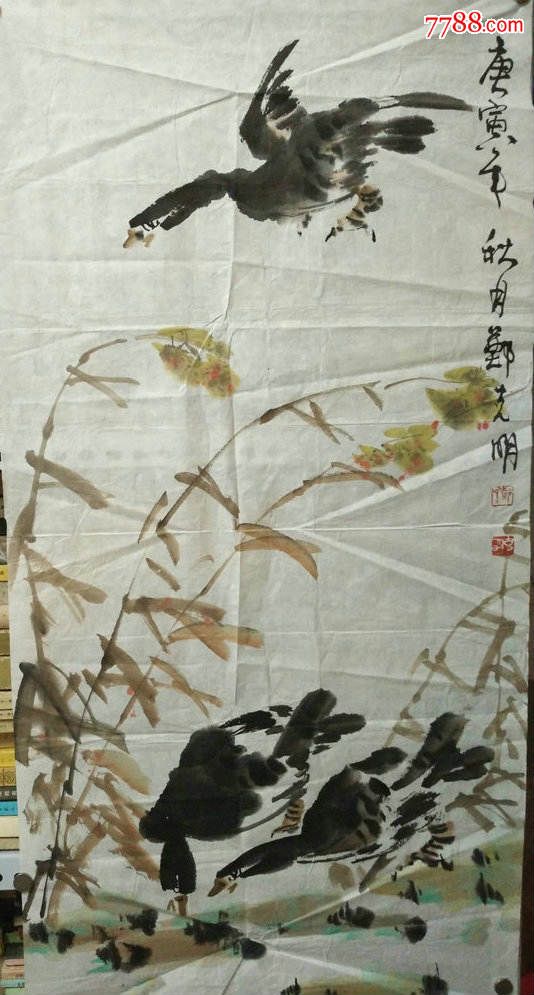 7788.com
庚寅年秋月鄭克明